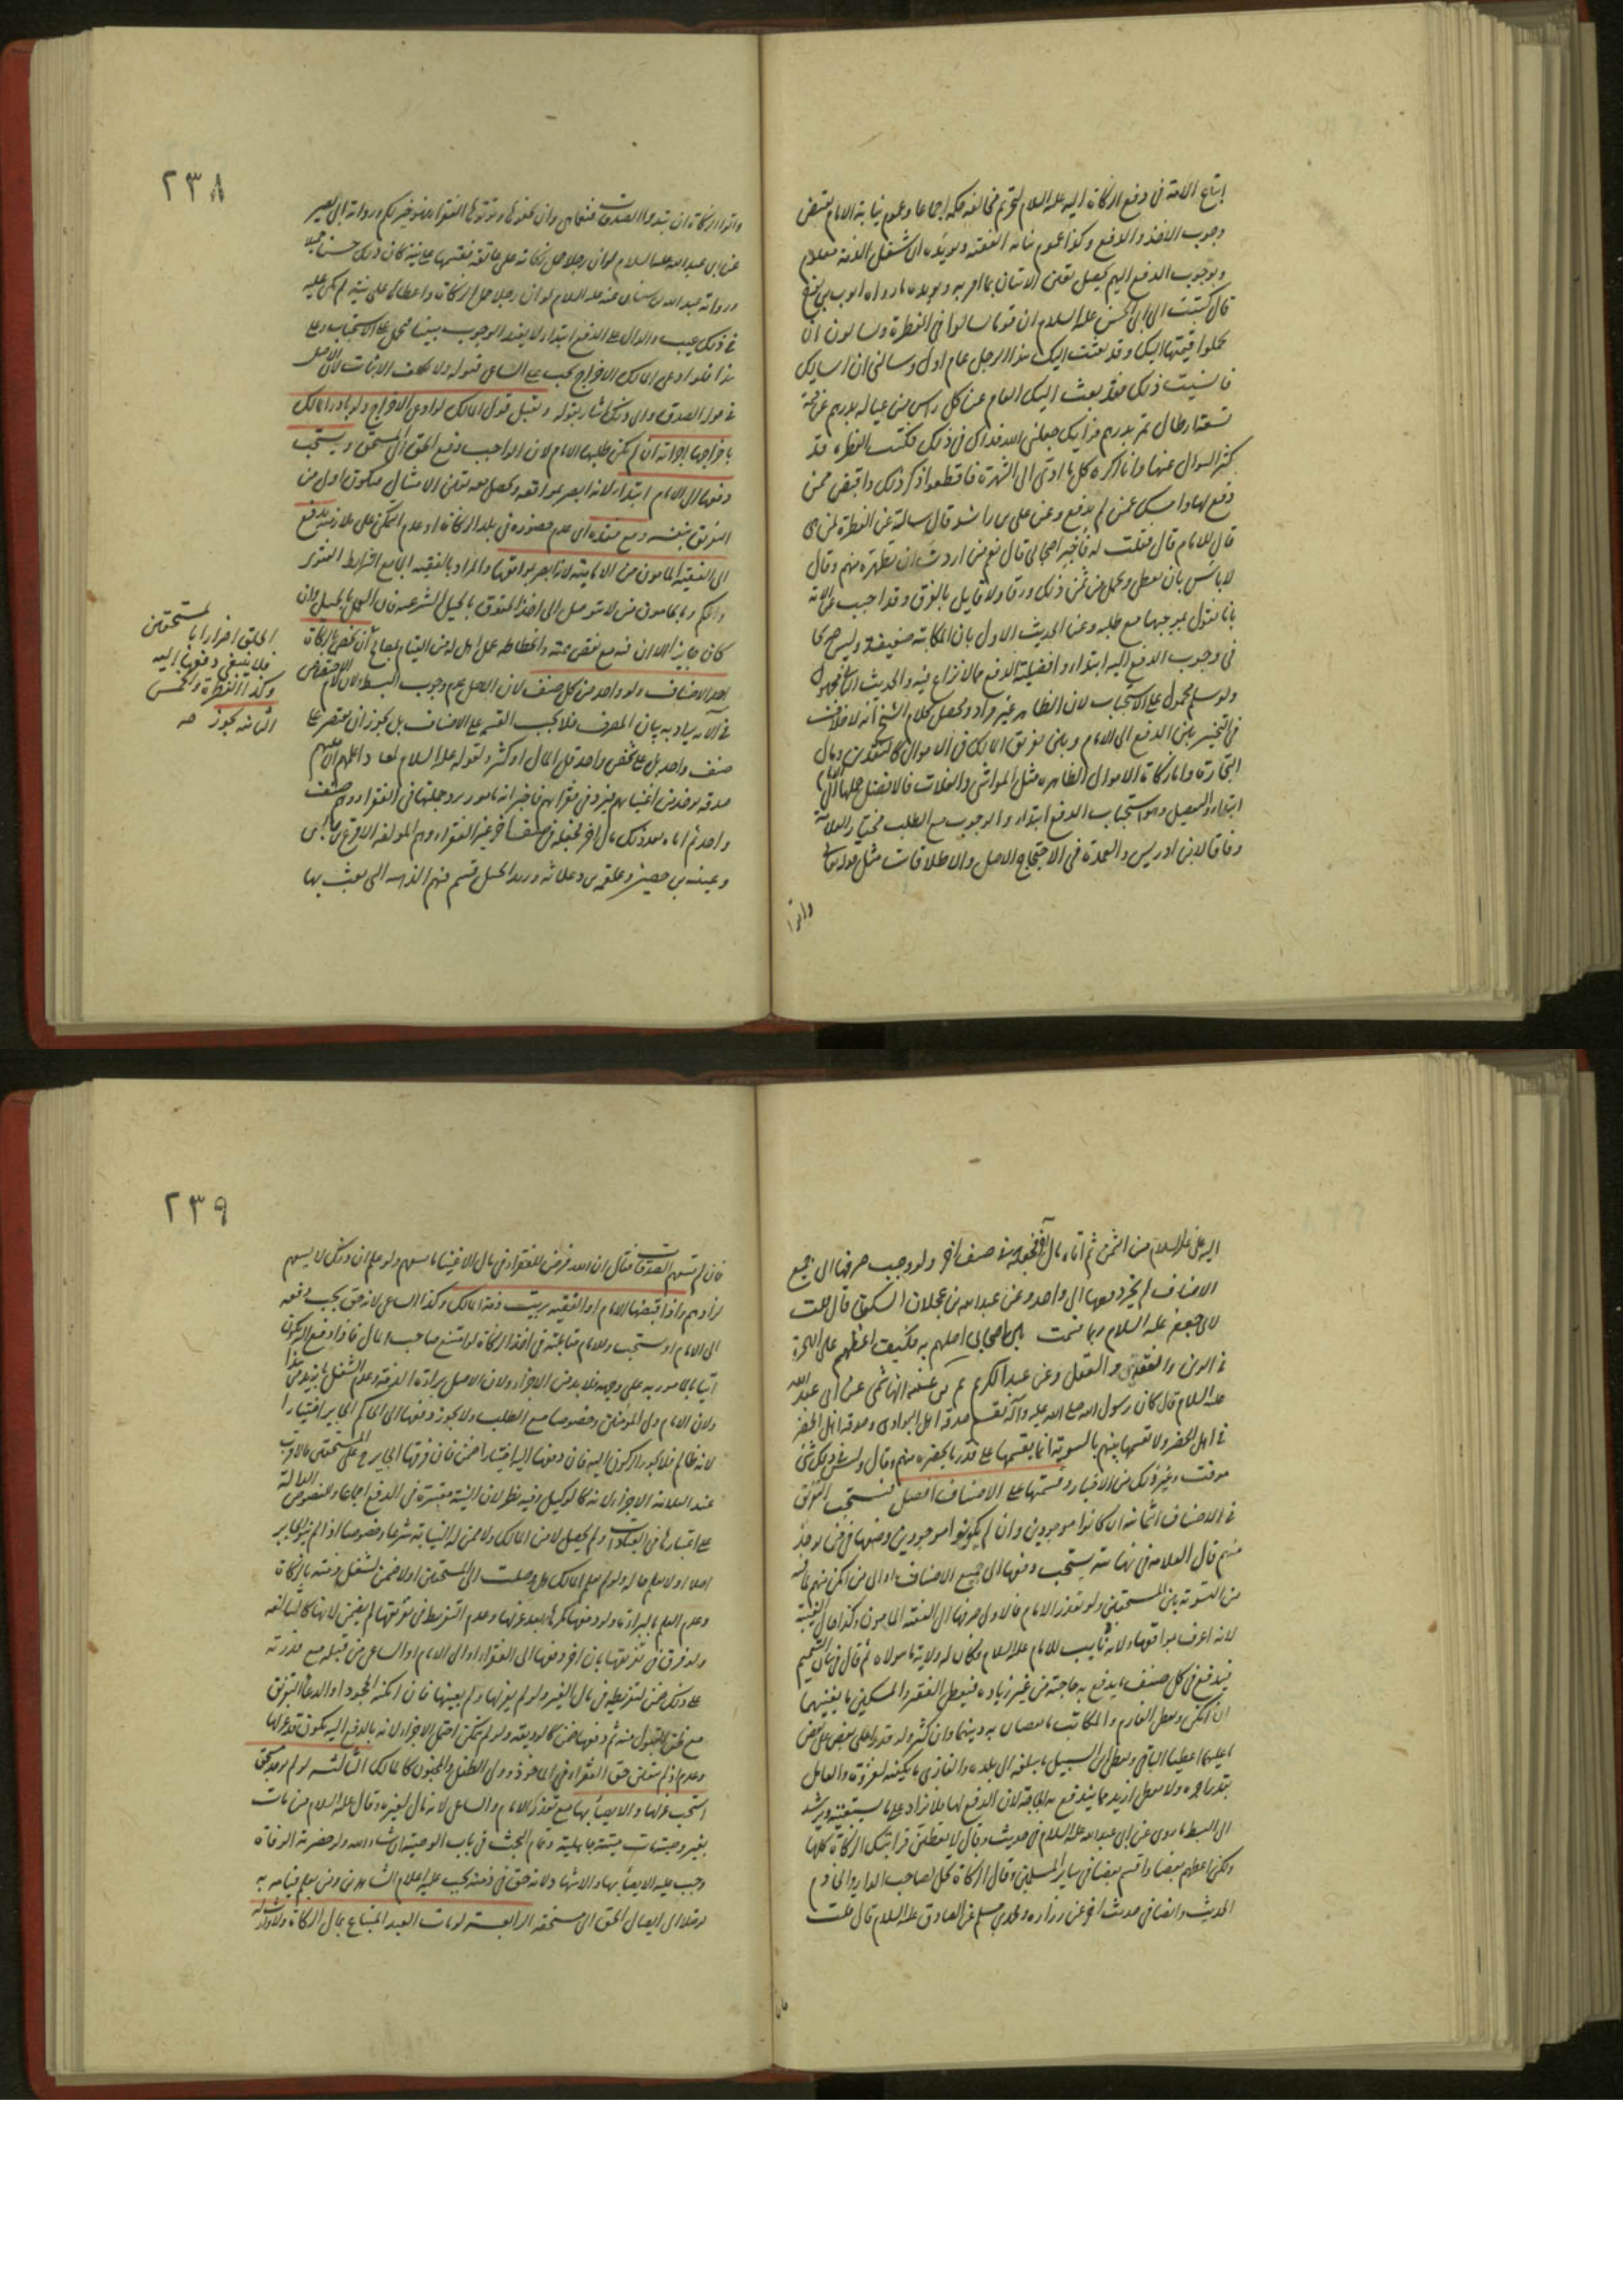 اتباع الائمة في دفع الزكاة اليه عليه السلام لتحريم مخالفة حكمه اجماعا وعموم نيابة الامام يقتضى
وجوب الاخذ والدفع وكذا عموم نيابة الفقيه ويؤيده ان شغل الذمة معلوم
وبوجوب الدفع اليهم يحصل يقين الاتيان بما امر به ويؤيده ما رواه ايوب بن نوح
قال كتبت الى ابى الحسن عليه السلام ان قوما سالوا فى الفطرة ويسالون ان
يحملوا قيمتها اليك وقد بعثت اليك هذا الرجل عام اول وسالنى ان اسالك
فانسيت ذلك فقد بعث اليك العام عن كل راس من عياله بدرهم عن قيمة
تسعة ارطال تمر بدرهم فرايك جعلنى الله فداك فى ذلك فكتب الفطرة قد
كثر السوال عنها وانا اكره كل ما ادى الى الشهرة فاقطعوا ذكر ذلك واقبض ممن
دفع لها وامسك عمن لم يدفع وعن على بن راشد قال سالته عن الفطرة لمن هى
قال للامام قال فقلت له فاخبر اصحابى قال نعم من اردت ان تطهره منهم وقال
لا باس بان يعطى ويحمل من ثمن ذلك ورقا ولا قايل بالفرق وقد اجيب عن الاية
بانا نقول بموجبها مع طلبه وعن الحديث الاول بان المكاتبة ضعيفة وليس صريحا
فى وجوب الدفع اليه ابتداء وافضلية الدفع مما لا نزاع فيه والحديث الثانى مجهول
ولو سلم محمول على الاستحباب لان الظاهر غير مراد ومحصل كلام الشيخ انه لا خلاف
فى التخيير بين الدفع الى الامام وبين تفريق المالك فى الاموال كالنقدين ومال
التجارة واما زكاة الاموال الظاهرة مثل المواشى والغلات فالافضل حملها الى الامام
ابتداء والتفصيل وهو استحباب الدفع ابتداء والوجوب مع الطلب مختار العلامة
وفاقا لابن ادريس والعمدة فى الاحتجاج الاصل والاطلاقات مثل قوله تعالى
واتوا
٢٣٨
واتوا الزكاة ان تبدوا الصدقات فنعما هى وان تخفوها وتؤتوها الفقراء فهو خير لكم ورواية ابى بصير
عن ابى عبد الله عليه السلام لو ان رجلا حمل زكاته على عاتقه فقسمها علانية كان ذلك حسنا جميلا
ورواية عبد الله بن سنان عنه عليه السلام لو ان رجلا حمل الزكاة واعطاها علانية لم يكن عليه
فى ذلك عيب والدال على الدفع ابتداء لا يفيد الوجوب بيننا فحمل على الاستحباب وعلى
هذا فلو ادعى المالك الاخراج يجب على الساعى قبوله ولا يكلف الاثبات لان الاصل
فى قوله الصدق والى ذلك اشار بقوله ويقبل قول المالك لو ادعى الاخراج ولو بادر المالك
باخراجها اجزاته ان لم يكن طلبها الامام لان الواجب دفع الحق الى المستحق ويستحب
دفعها الى الامام ابتداء لانه ابصر بمواقعه ويحصل معه يقين الامتثال فيكون اولى من
التفريق بنفسه ومع فقده اى عدم حضوره فى بلد الزكاة او عدم التمكن على ملازمته يدفع
الى الفقيه المامون من الامامية لانه ابصر بمواقعها والمراد بالفقيه الجامع لشرايط الفتوى
والحكم وبالمامون من لا يتوصل الى اخذ الحقوق بالحيل الشرعية فان العمل بالحيل وان
كان جايزا الا ان فيه مع نقص همته وانحطاطه عمل اهل لهذه القيام بمصالح ان يخص بالزكاة
احد الاصناف ولو واحد من كل صنف لان الاصل عدم وجوب البسط ولان لام الاختصاص
فى الاية يراد به بيان المصرف فلا يجب القسمة على الاصناف بل يجوز ان يقتصر على
صنف واحد بل على شخص واحد قل المال او كثر ولقوله عليه السلام لمعاذ واعلمهم ان عليهم
صدقة توخذ من اغنيائهم فترد فى فقرائهم فاخبر انه مامور برد جملتها فى الفقراء وهم صنف
واحد ثم اتاه بعد ذلك مال اخر فجعله فى صنف اخر غير الفقراء وهم المولفة الاقرع بن حابس
وعيينة بن حصين وعلقمة بن وعلاثة وزيد الخيل قسم فيهم الذهبية التى بعث بها
لمستحقين
الحق اضرارا با
فلا ينبغى دفعها اليه
وكذا الفطرة والخمس
الثانية يجوز صه
اليه على عليه السلام من اليمن ثم اتاه مال اخر فجعله فى صنف اخر ولو وجب صرفها الى جميع
الاصناف لم يجز دفعها الى واحد وعن عبد الله بن عجلان السكونى قال قلت
لابى جعفر عليه السلام ربما قسمت بين اصحابى اصلهم به فكيف اعطيهم قال اعطهم على الهجرة
فى الدين والفقه والعقل وعن عبد الكريم بن عتبة الهاشمى عن ابى عبد الله
عليه السلام قال كان رسول الله صلى الله عليه وآله يقسم صدقة اهل البوادى وصدقة اهل الحضر
فى اهل الحضر ولا يقسمها بينهم بالسوية انما يقسمها على قدر ما يحضره منهم وقال وليس فى ذلك شئ
موقت وغير ذلك من الاخبار وقسمتها على الاصناف افضل فيستحب التفريق
فى الاصناف الثمانية ان كانوا موجودين وان لم يكونوا موجودين وضعها فى من يوجد
منهم قال العلامة فى نهايته يستحب دفعها الى جميع الاصناف او الى من امكن منهم لما فيه
من التسوية بين المستحقين ولو تعذر الامام فالاولى صرفها الى الفقيه المامون وكذا حال الغيبة
لانه اعرف بمواقعها ولانه نايب للامام عليه السلام فكان له ولاية ما تولاه ثم قال فى بيان التقسيم
فيدفع فى كل صنف ما يدفع به حاجته من غير زيادة فيعطى الفقير والمسكين ما يغنيهما
ان امكن ويعطى الغارم والمكاتب ما يقضيان به دينهما وان كثر ولو قدرا على بعض
ما عليهما اعطيا الباقى ويعطى ابن السبيل ما يبلغه الى بلده والغازى ما يكفيه لغزوه والعامل
بقدر اجره ولا يعطى ازيد مما يندفع به الحاجة لان الدفع لها فلا يزاد على ما يستغنيه ويرشد
الى البسط ما روى عن ابى عبد الله عليه السلام فى حديث وقال لا يعطين قرابتك الزكاة كلها
ولكن اعطهم بعضا واقسم بعضا فى ساير المسلمين وقال الزكاة تحل لصاحب الدار والخادم
الحديث وايضا فى حديث اخر عن زرارة ومحمد بن مسلم عن الصادق عليه السلام قال قلت
فان
٢٣٩
فان لم تسعهم الصدقات فقال ان الله فرض للفقراء فى مال الاغنياء ما يسعهم ولو علم ان ذلك لا يسعهم
لزادهم واذا قبضها الامام او الفقيه برئت ذمة المالك وكذا الساعى لانه حق يجب دفعه
الى الامام او يستحب وللامام مقاتلته فى اخذ الزكاة لو امتنع صاحب المال فاذا دفع اليه يكون
اتيا بالمامور به على وجهه فلا بد من الاجزاء ولان الاصل براءة الذمة وعدم الشغل بازيد من هذا
ولان الامام ولى المؤمنين وخصوصا مع الطلب ولا يجوز دفعها الى الحاكم الجاير اختيارا
لانه ظالم فلا يجوز الركون اليه فان دفعها اليه اختيارا ضمن فان فرقها الجاير على المستحقين فالاقرب
عند العلامة الاجزاء لانه كالوكيل وفيه نظر لان النية معتبرة فى الدفع اجماعا وللنصوص الدالة
على اعتبارها فى العبادات ولم يحصل لا من المالك ولا ممن له النيابة شرعا وخصوصا اذا لم ينو الجاير
اصلا او لا يعلم حاله ولو لم يعلم المالك هل وصلت الى المستحقين اولا ضمن لشغل ذمته بالزكاة
وعدم العلم بالبراءة ولو دفعها كرها بعد عزلها وعدم التفريط فى تفريقها لم يضمن لانها كالتالفة
ولو فرط فى تفريقها بان اخر دفعها الى الفقراء او الى الامام او الساعى من قبله مع قدرته
على ذلك ضمن لتفريطه فى مال الغير ولو لم يعزلها ولم يعينها فان امكنه الجحود او ادعاء التفريق
مع ظن القبول منه ثم دفعها ضمن كالوديعة ولو لم يتمكن احتمل الاجزاء لانه بالدفع اليه يكون قد عزلها
وعدم اذ لم يتعين حق الفقراء فى الماخوذ وولى الطفل والمجنون كالمالك الثالثة لو لم يوجد مستحق
استحب عزلها والايصاء بها مع تعذر الامام والساعى لانه مال لغيره وقال عليه السلام من مات
بغير وصية مات ميتة جاهلية وتمام البحث فى باب الوصية ان شاء الله ولو حضرته الوفاة
وجب عليه الايصاء بها والاشهاد لانه حق فى ذمته يجب عليه اعلام الشاهدين ومن يعلم قيامه به
توصلا الى ايصال الحق الى مستحقه الرابعة لو مات العبد المبتاع بمال الزكاة ولا وارث له